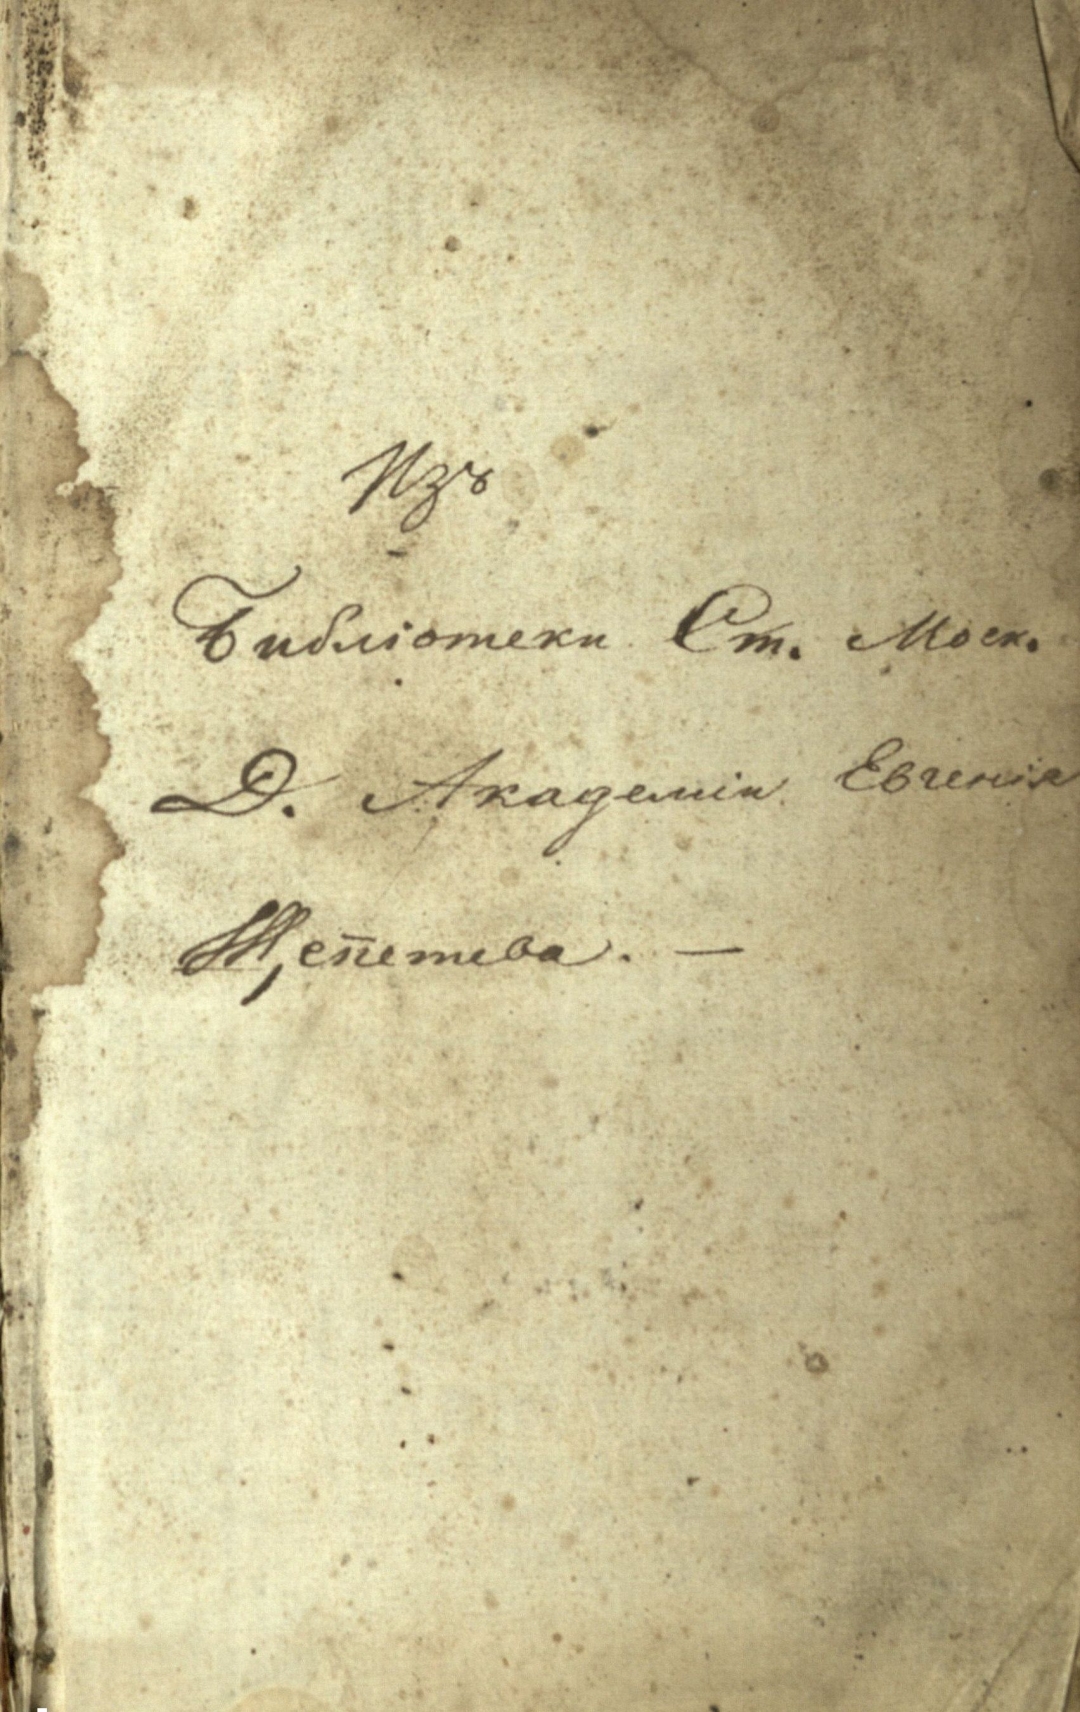 Изъ
Библіотеки Ст. Моск.
Д. Академіи Евгенія
Щепетева. —